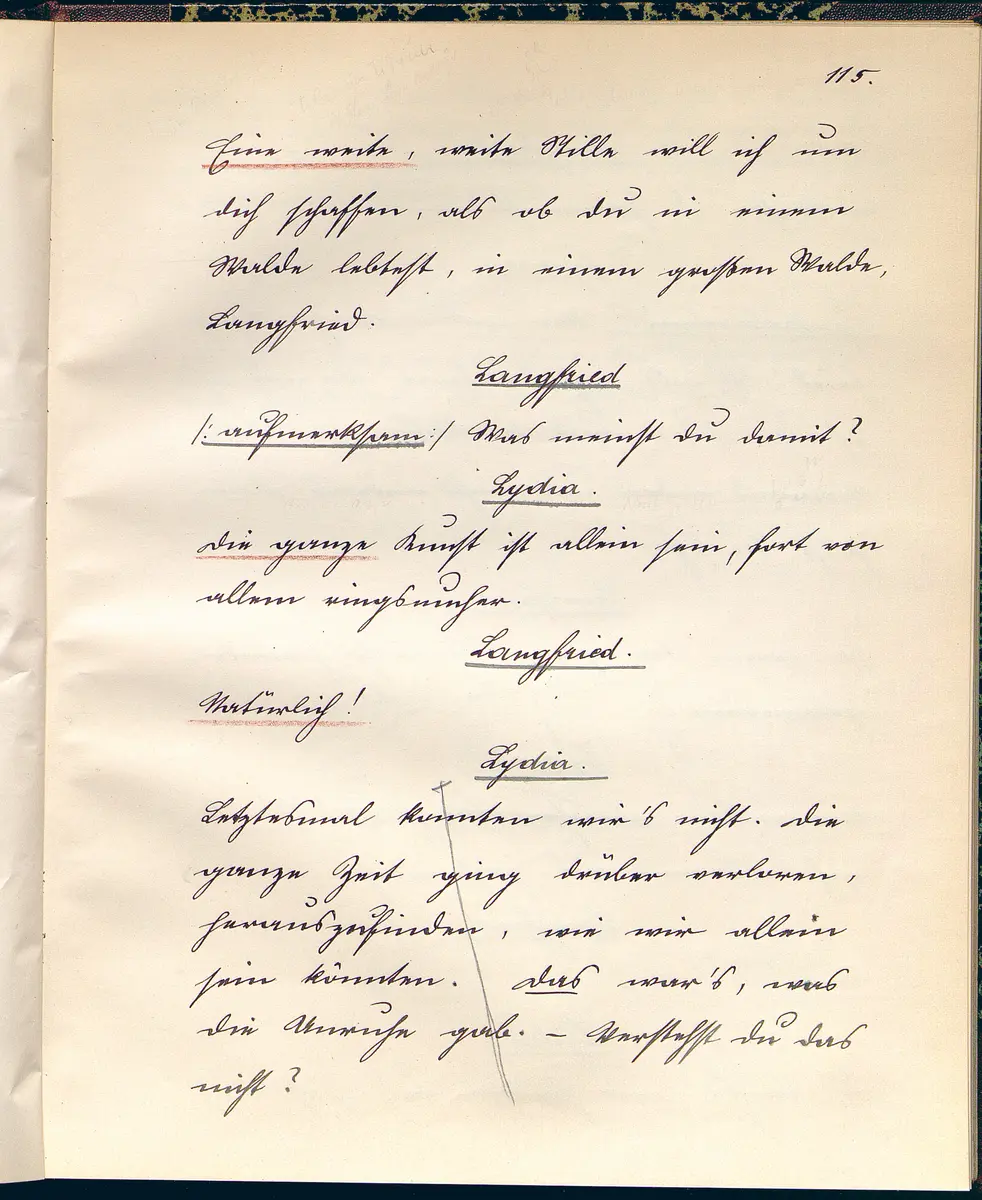 115.
Eine weite, weite Stille will ich um
dich schaffen, als ob du in einem
Walde lebtest, in einem großen Walde,
Langfried.
Langfried
/: aufmerksam :/ Was meinst du damit?
Lydia.
Die ganze Kunst ist allein sein, fort von
allem ringsumher.
Langfried.
Natürlich!
Lydia.
Letztesmal konnten wir's nicht. Die
ganze Zeit ging drüber verloren,
herauszufinden, wie wir allein
sein könnten. Das war's, was
die Unruhe gab. – Verstehst du das
nicht?